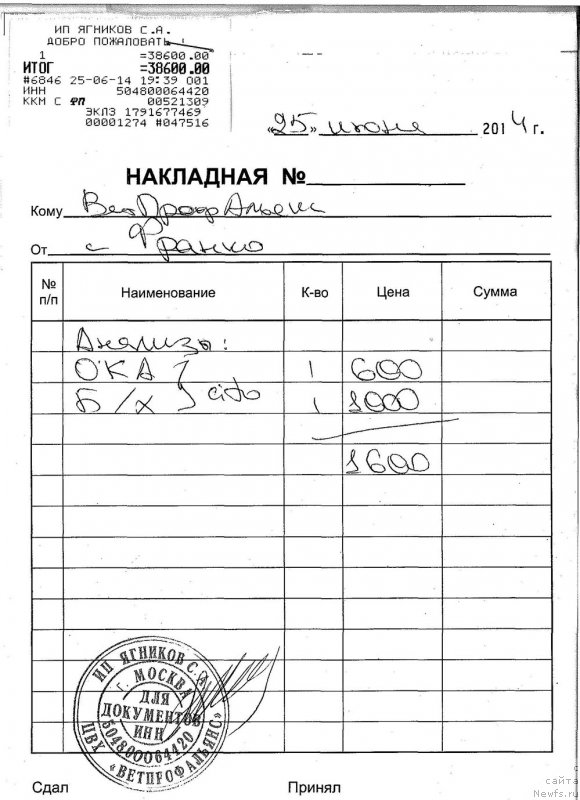 ИП ЯГНИКОВ С.А.
ДОБРО ПОЖАЛОВАТЬ !
1 =38600.00
ИТОГ =38600.00
#6846 25-06-14 19:39 001
ИНН 504800064420
ККМ С ФП 00521309
ЭКЛЗ 1791677469
00001274 #047516
«25» июня 2014 г.
НАКЛАДНАЯ №
Кому ВетПрофАльянс
От с Франко
№ п/п Наименование К-во Цена Сумма
Анализы:
ОКА 1 600
Б/х cito 1 1000
1600
ИП ЯГНИКОВ С.А.
г. МОСКВА
ДЛЯ
ДОКУМЕНТОВ
ИНН
504800064420
ЦВХ "ВЕТПРОФАЛЬЯНС"
Сдал Принял
с сайта
Newfs.ru